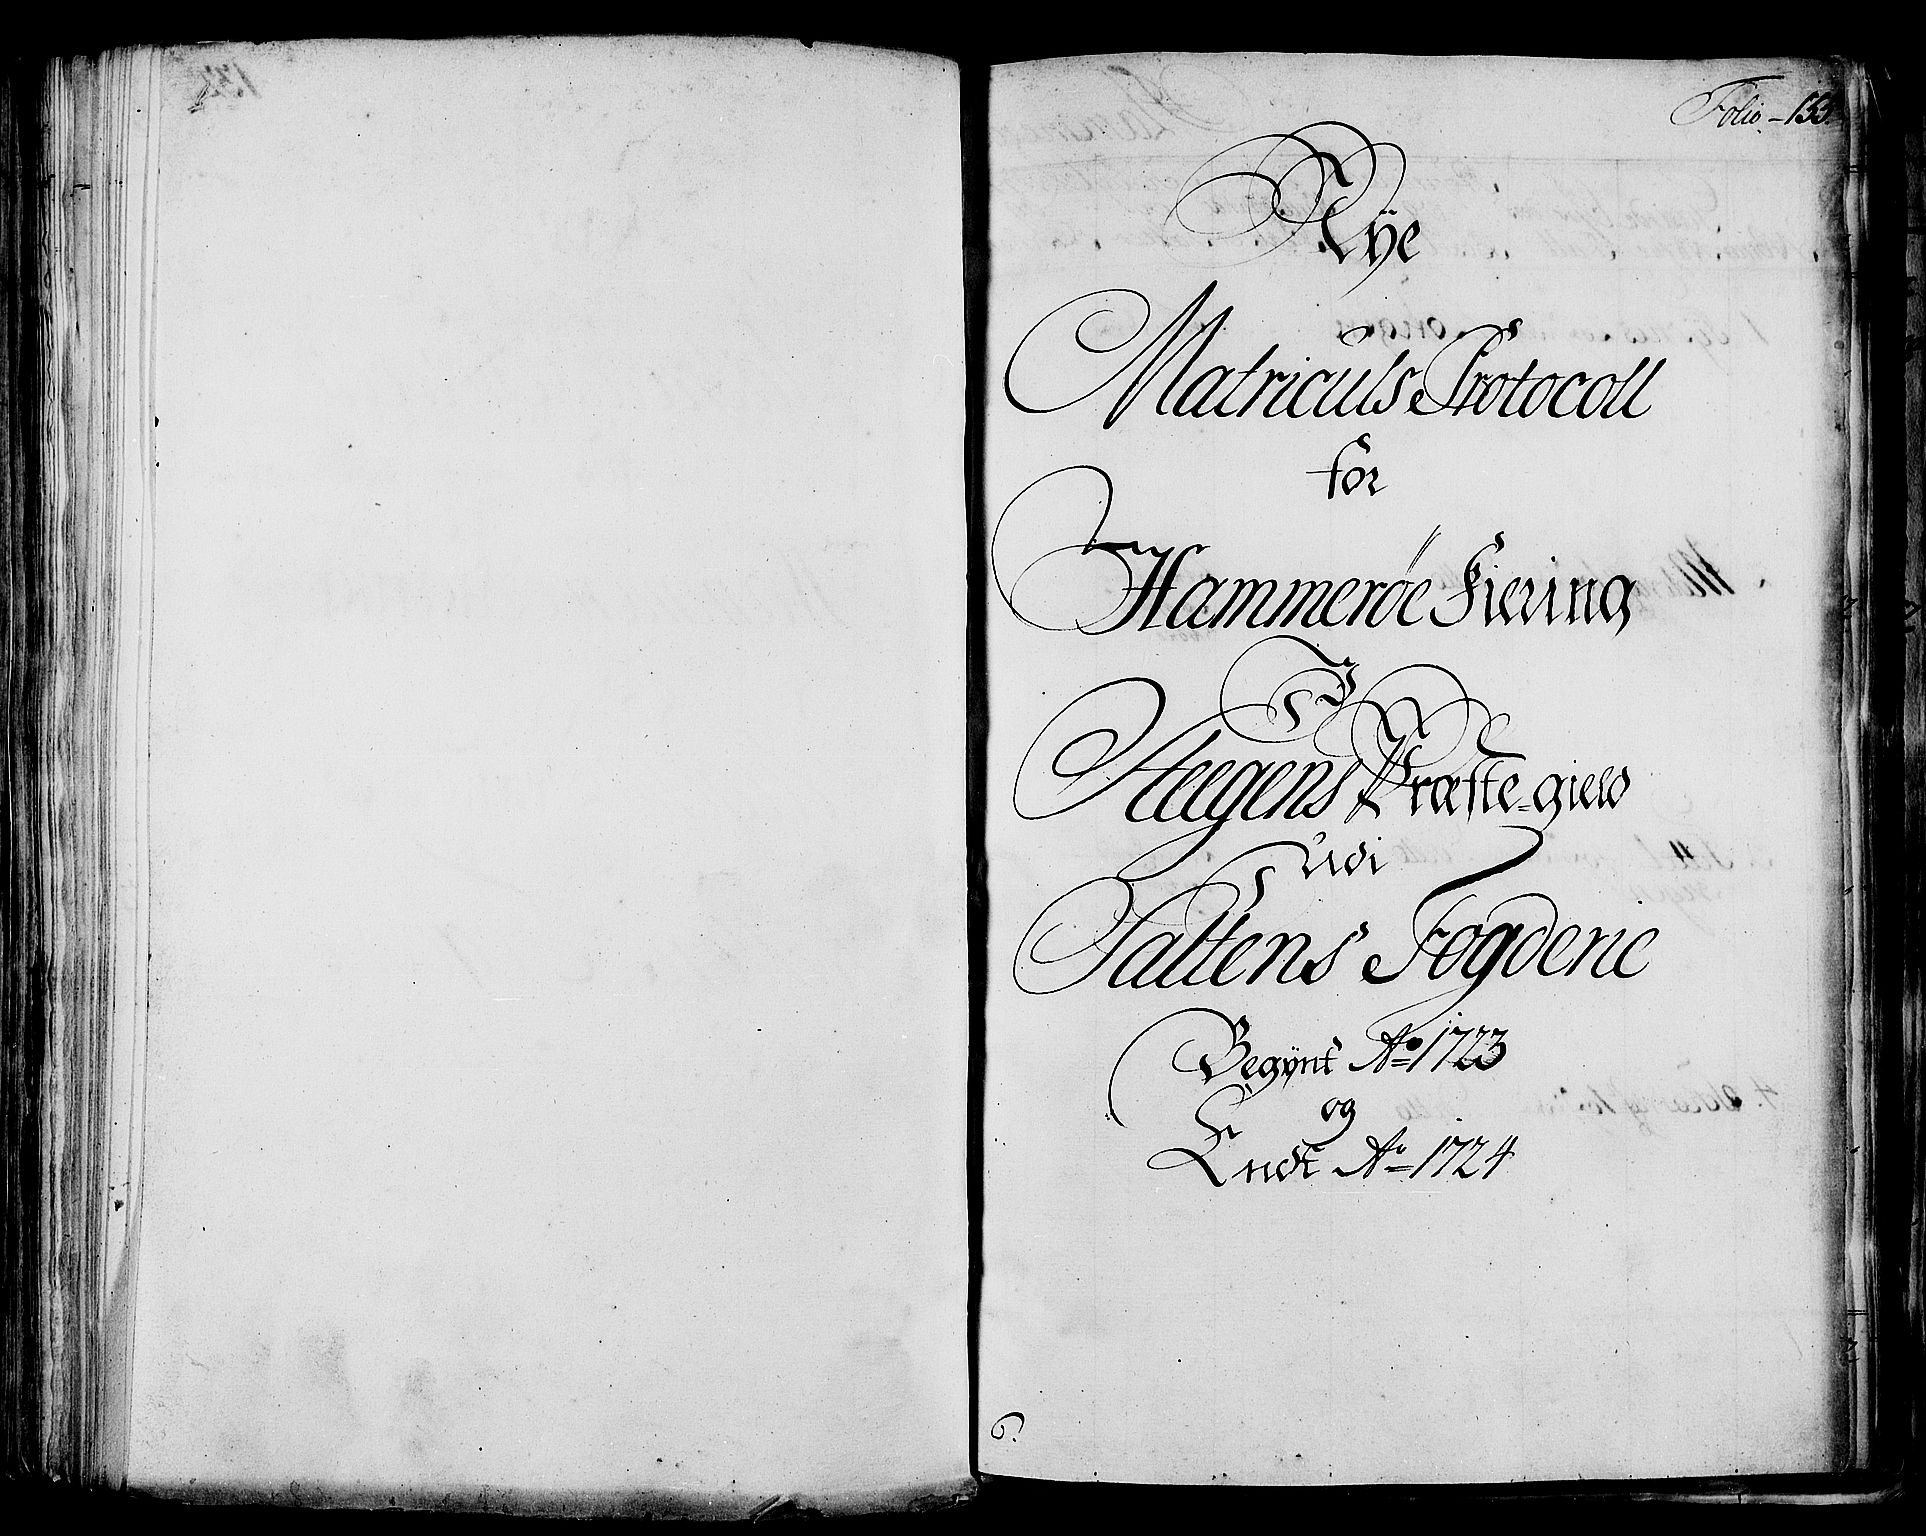 Folio - 133.
Nÿe
Matriculs Protocoll
for
Hammerøe Fiering
I
Steegens Præste-gield
Udi
Saltens Fogderie
Begÿnt Ao 1723
og
Endt Ao 1724
6.